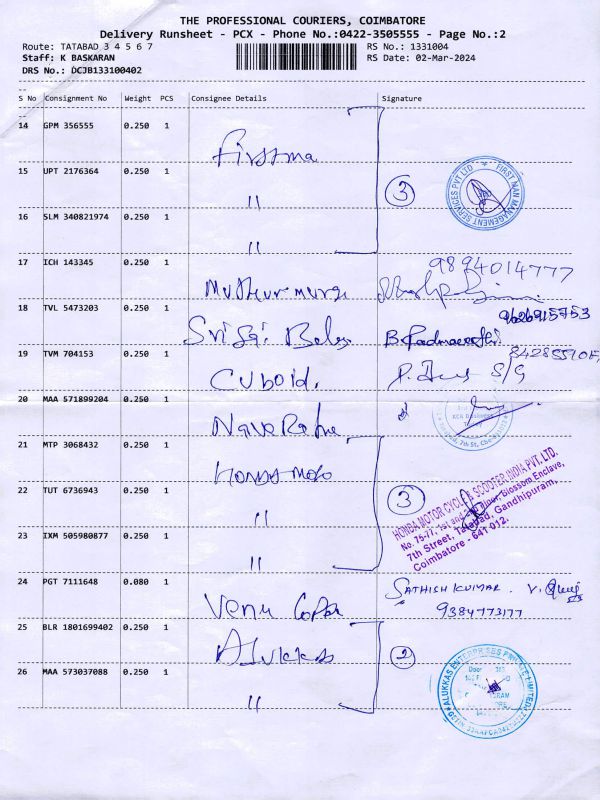 THE PROFESSIONAL COURIERS, COIMBATORE
Delivery Runsheet - PCX - Phone No.:0422-3505555 - Page No.:2
Route: TATABAD 3 4 5 6 7
RS No.: 1331004
Staff: K BASKARAN
RS Date: 02-Mar-2024
DRS No.: DCJB133100402
S No Consignment No Weight PCS Consignee Details Signature
14 GPM 356555 0.250 1
Firstma
15 UPT 2176364 0.250 1
"
3
FIRST MAN MANAGEMENT SERVICES PVT LTD
16 SLM 340821974 0.250 1
"
17 ICH 143345 0.250 1
9894014777
18 TVL 5473203 0.250 1
9626915753
Sri Sai
19 TVM 704153 0.250 1
Cuboid.
S/G
20 MAA 571899204 0.250 1
21 MTP 3068432 0.250 1
Honda Moto
22 TUT 6736943 0.250 1
"
3
HONDA MOTOR CYCLE & SCOOTER INDIA PVT. LTD.
No. 75-77, 1st and 2nd Floor, Blossom Enclave,
7th Street, Tatabad, Gandhipuram,
Coimbatore - 641 012.
23 IXM 505980877 0.250 1
"
24 PGT 7111648 0.080 1
SATHISH KUMAR . V.
9384773177
Venu Gopal
25 BLR 1801699402 0.250 1
Alukkas
2
26 MAA 573037088 0.250 1
"